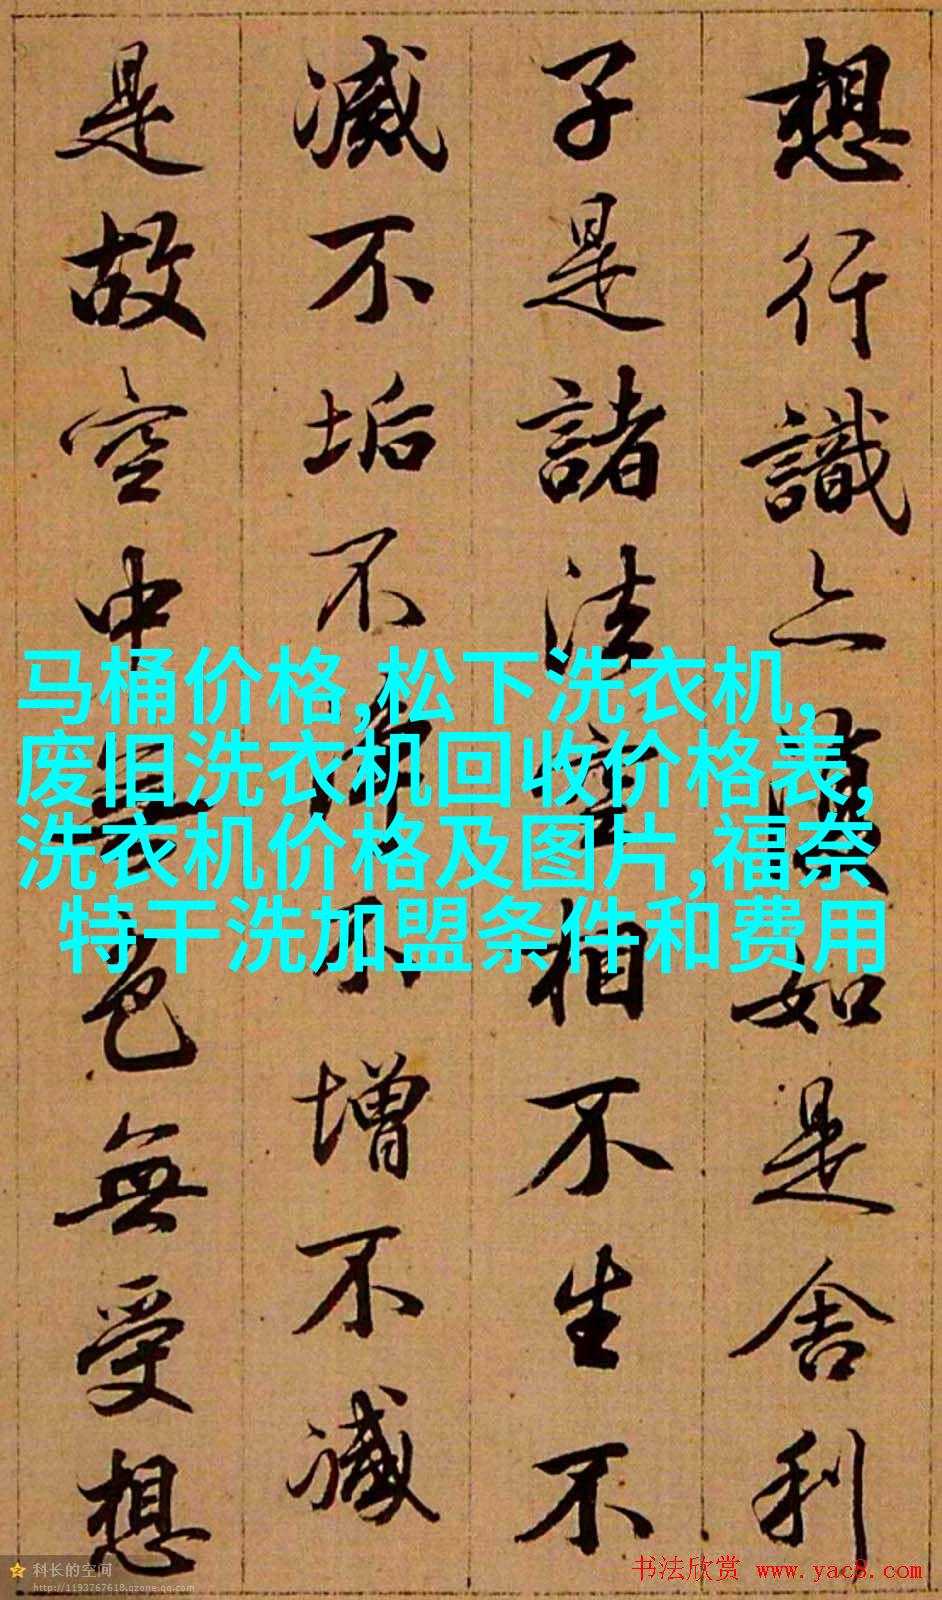 想行識亦復如是舍利
子是諸法空相不生不
滅不垢不淨不增不減
是故空中無色無受想
马桶价格,松下洗衣机,
废旧洗衣机回收价格表,
洗衣机价格及图片,福奈
特干洗加盟条件和费用
科长的空间
http://1193767618.qzone.qq.com
书法欣赏 www.yac8.com